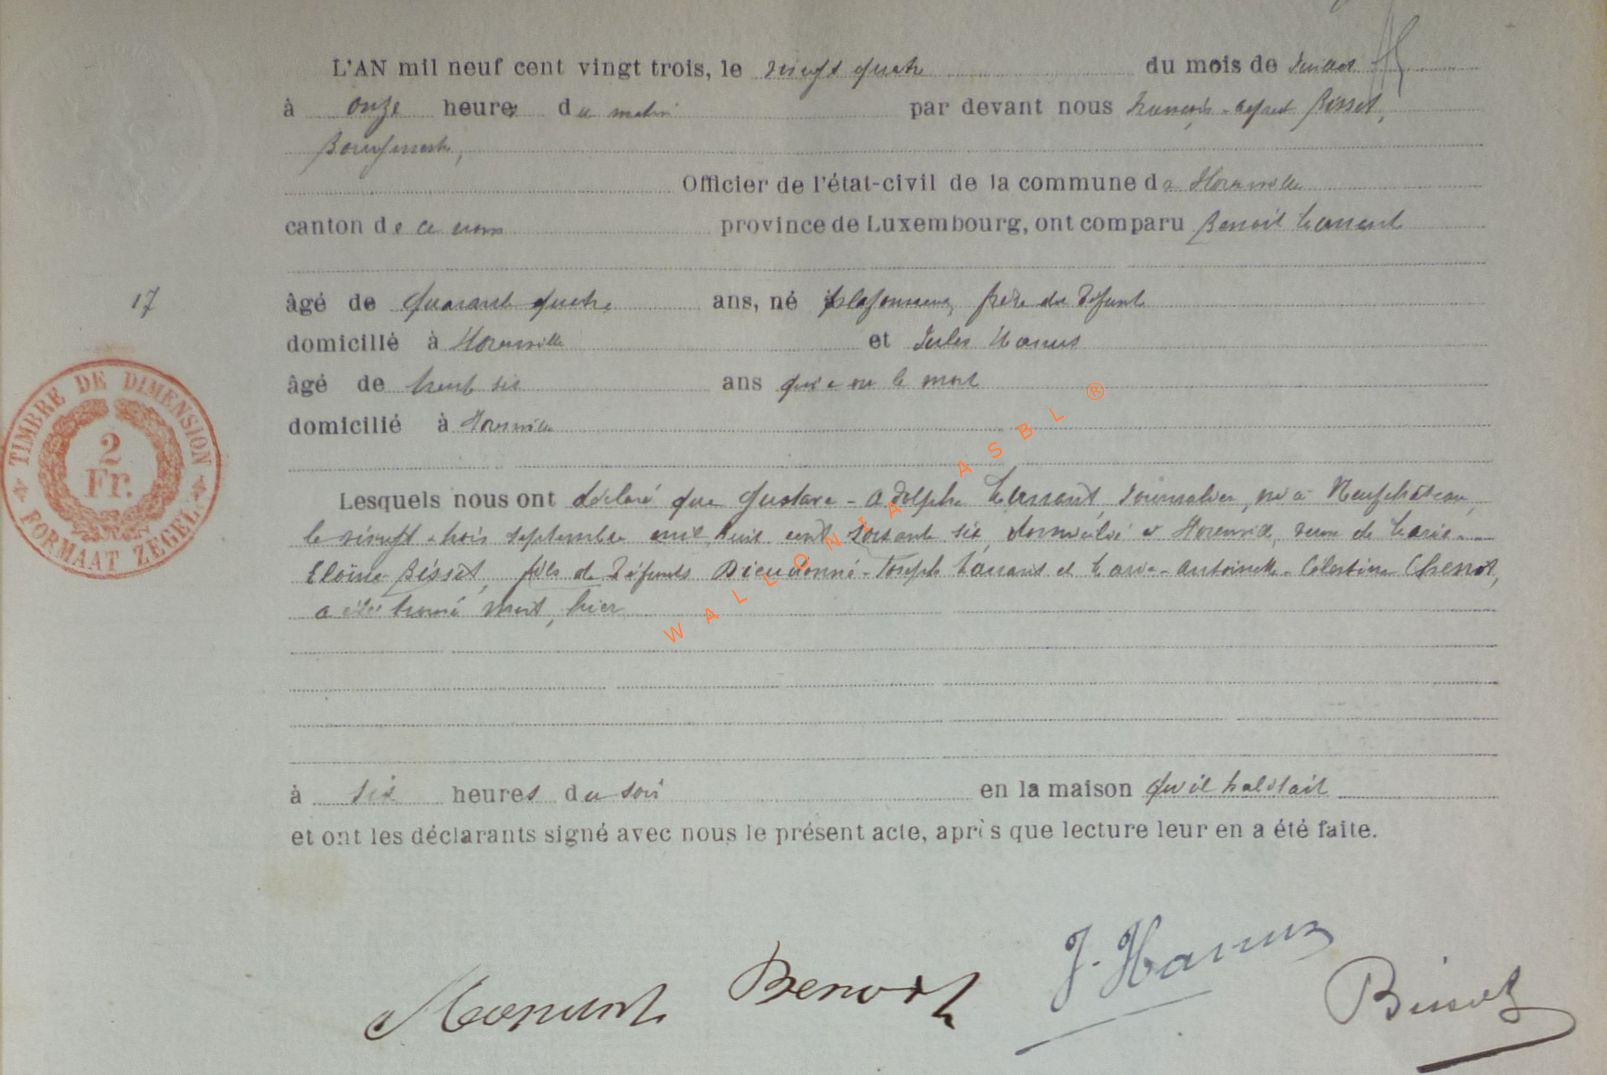 L'AN mil neuf cent vingt trois, le vingt quatre du mois de Juillet
à onze heures du matin par devant nous François-Alfred Bissot,
Bourgmestre,
Officier de l'état-civil de la commune de Morenville
canton de ce nom province de Luxembourg, ont comparu Benoit
17
âgé de quarante quatre ans, né plafonneur, frère du défunt
domicilié à et Jules Hanus
âgé de trente six ans qui a vu le mort
domicilié à
TIMBRE DE DIMENSION
2
Fr.
FORMAAT ZEGEL
Lesquels nous ont déclaré que Gustave-Adolphe journalier, né à Neufchâteau,
le vingt-trois septembre mil huit cent soixante six, domicilié à veuf de Marie-
Eloïse Bissot, fils de défunts Dieudonné-Joseph et Marie-Antoinette-Célestine Chenot,
a été trouvé mort, hier
WALLONIA ASBL ®
à six heures du soir en la maison qu'il habitait
et ont les déclarants signé avec nous le présent acte, après que lecture leur en a été faite.
Benoit J. Hanus Bissot